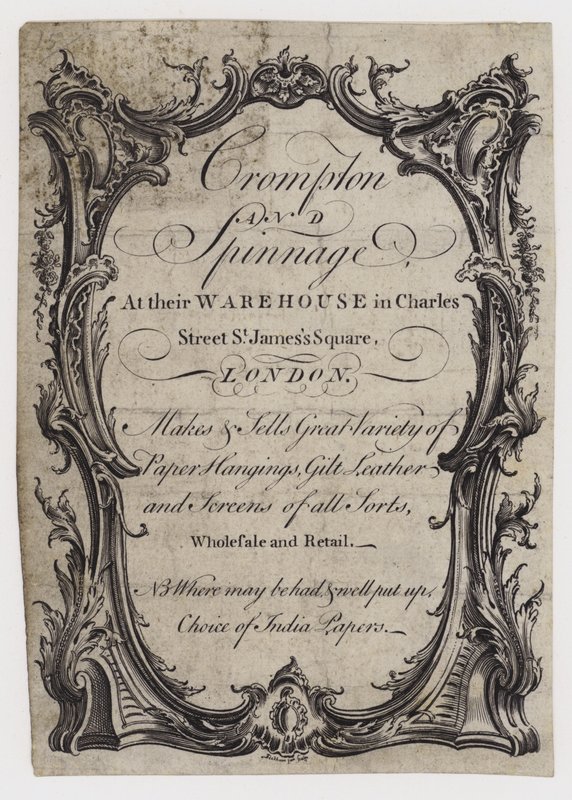 Crompton
AND
Spinnage,
At their WAREHOUSE in Charles
Street St. James's Square,
LONDON.
Makes & Sells Great Variety of
Paper Hangings, Gilt Leather
and Screens of all Sorts,
Wholeſale and Retail.
NB Where may be had, & well put up,
Choice of India Papers.